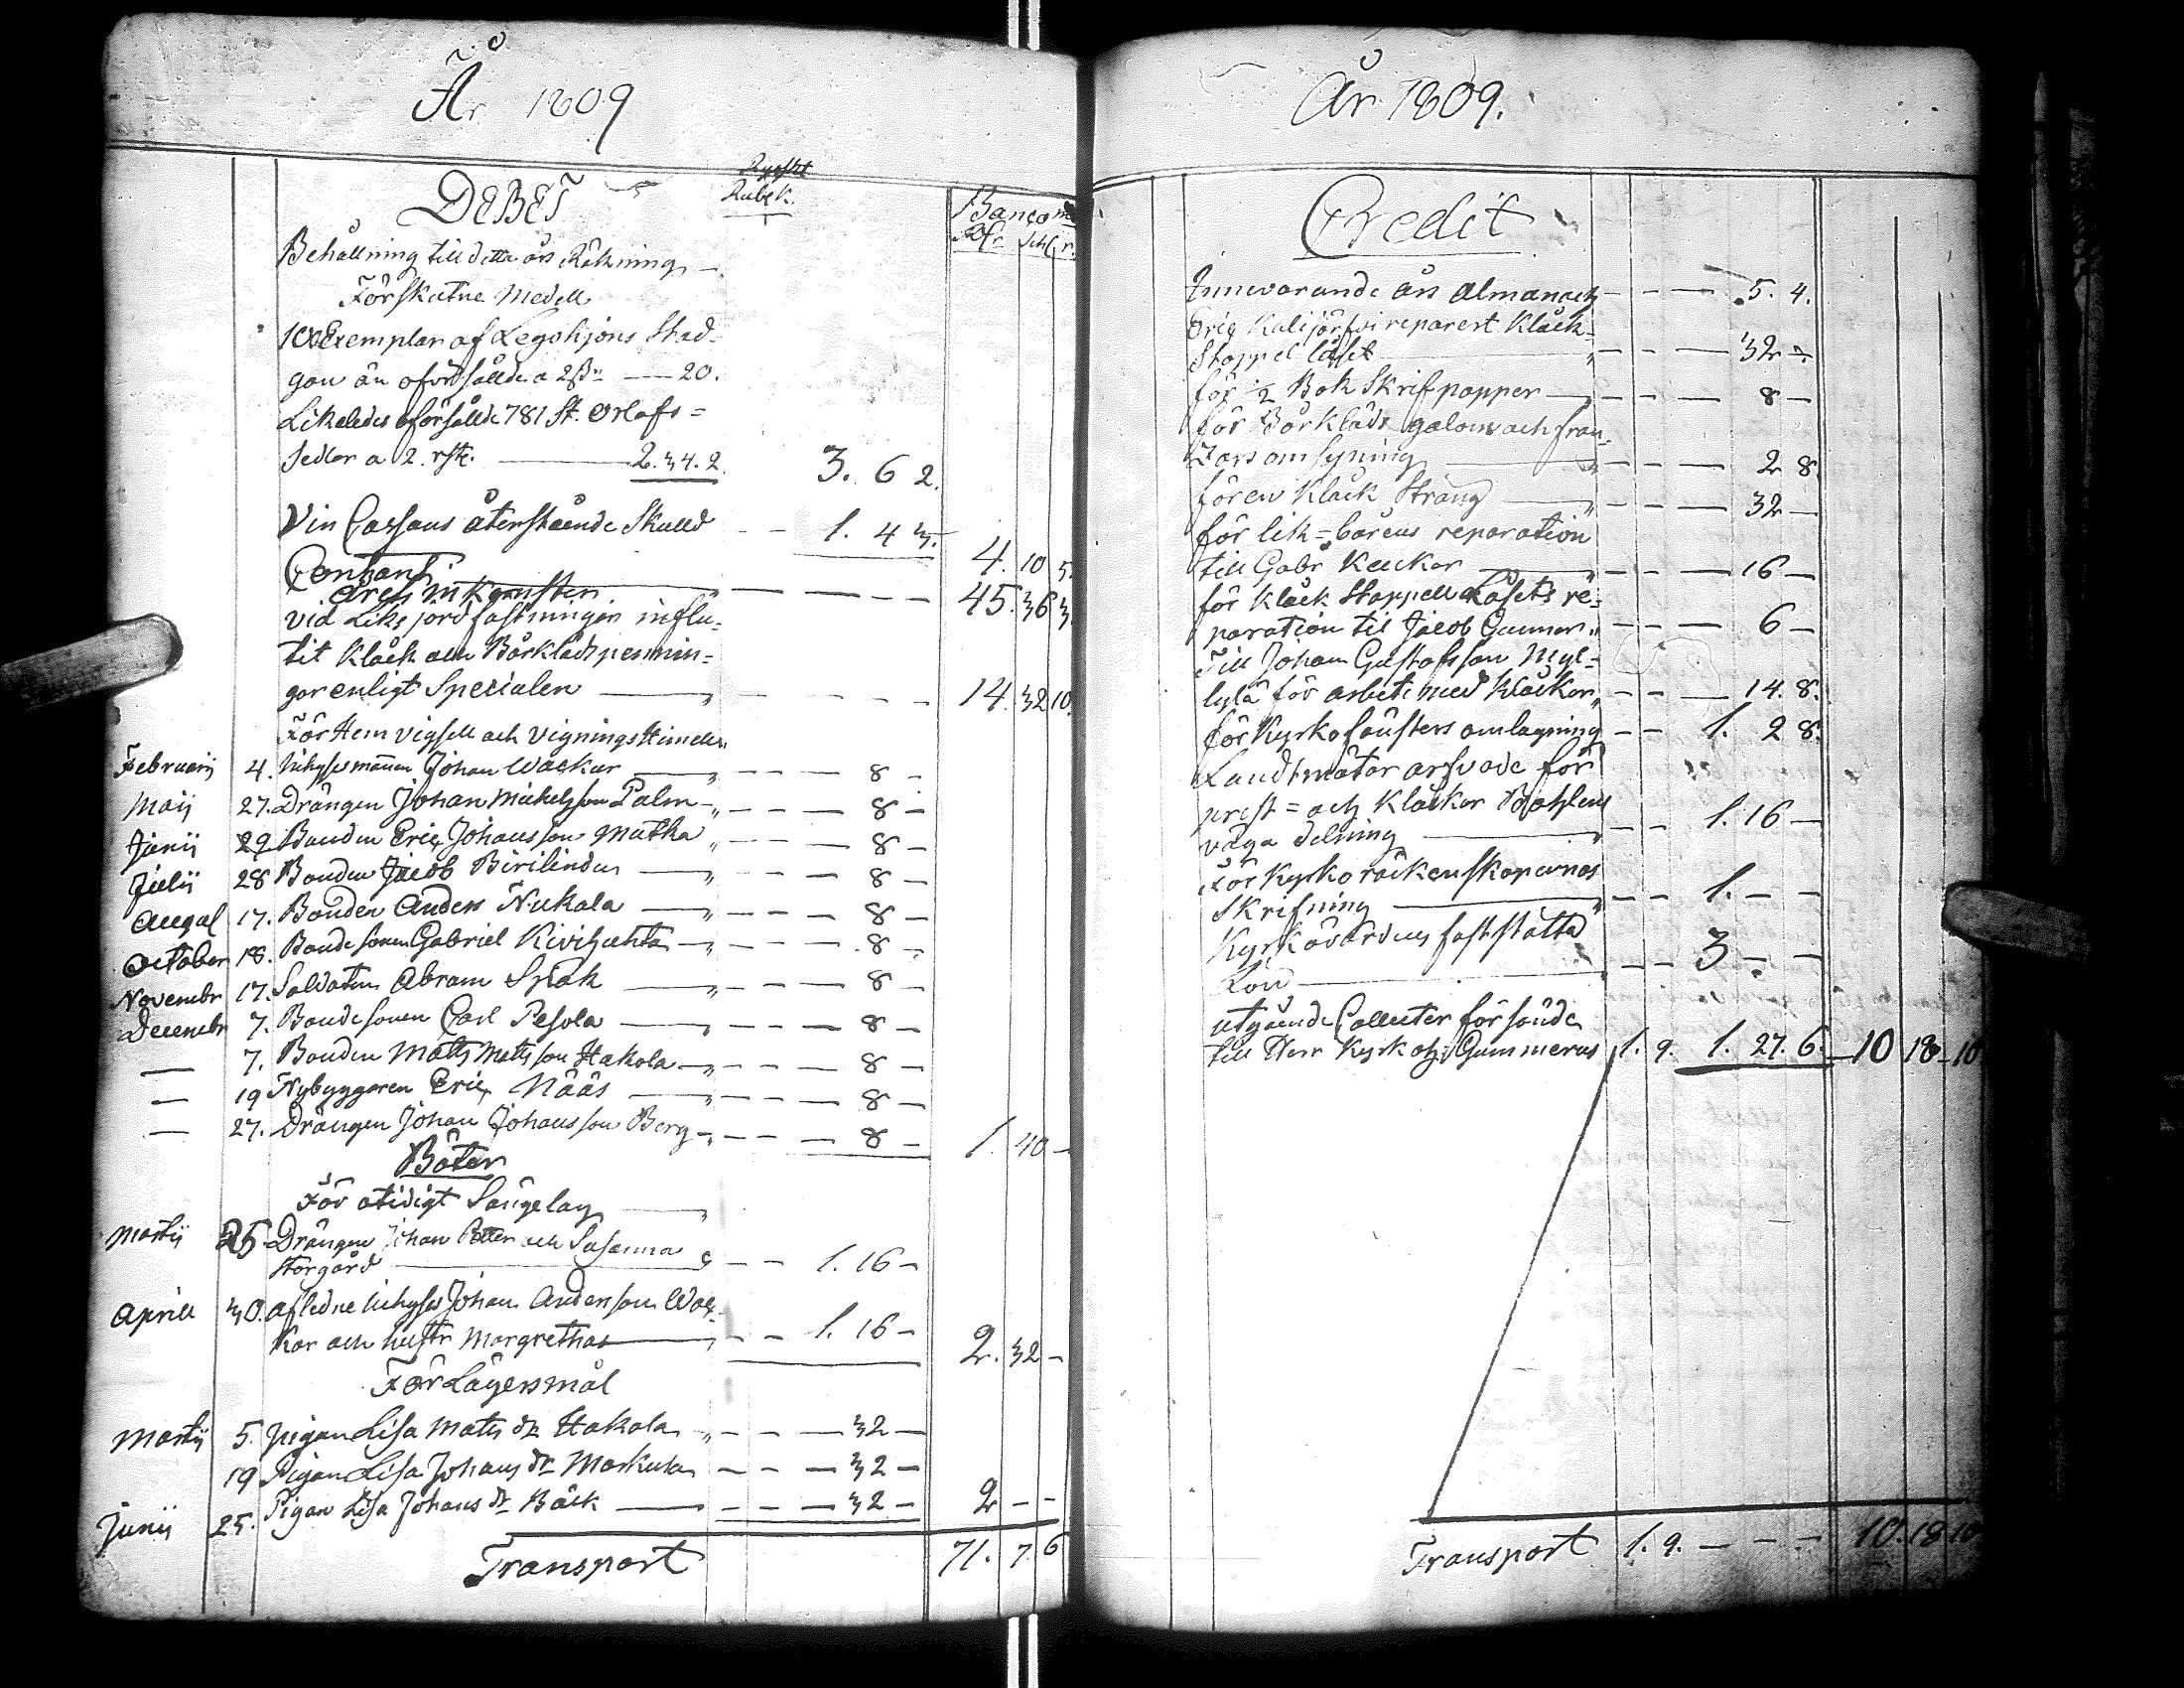 År 1809
DEBET
Ryskt
Rub. K.
Banco
Rdr Sch. r.
Behållning till detta års Räkning
Förskutne Medell
10 Exemplar af Legohjons Stad-
gan än oförsållde a 2 ß — 20.
Likeledes oförsållde 781 St. Orlofs=
Sedlar a 2. rst. — 2.34.2. 3. 6 2.
Vin Cassans återstående Skulld - - 1. 4 3. 4. 10 5
Contant — - - - 45. 36 3
Årets inkomster
vid Liks jordfästningar influ-
tit Klåck och Bårklädspennin=
gar enligt Specialen — - - - 14. 32 10.
För Hem vigsell och Vigningsstimelln
Februarij 4. Inhyses mannen Johan Wackar — - - - 8 -
Maij 27. Drängen Johan Michelsson Palm - - - - 8 -
Junij 29 Bonden Eric Johansson Mutka - - - 8 -
Julij 28 Bonden Jacob Birilindus — - - - 8 -
Augst 17. Bonden Anders Nukala — - - - 8 -
October 18. Bondesonen Gabriel Kivihuhta - - - - 8 -
Novembr 17. Soldaten Abram Spak — - - - 8 -
Decembr 7. Bondesonen Carl Pesola — - - - 8 -
— 7. Bonden Matts Mattsson Hakola - - - - 8 -
— 19 Nybyggaren Eric Nääs — - - - 8 -
— 27. Drängen Johan Johansson Berg - - - - 8 - 1. 40 -
Böter
För otidigt Sängelag —
Martij 25. Drängen Johan Peter och Susanna
Storgård — - - 1. 16 -
Aprill 30. Afledne Inhyses Johan Andersson Wac-
kar och hustr Margretha — - - 1. 16 - 2. 32 -
För Lägersmål
Martij 5. Pigan Lisa Mats dr Hakola - - - 32 -
19 Pigan Lisa Johans dr Markula - - - 32 -
Junij 25. Pigan Lisa Johans dr Bäck — - - - 32 - 2 - -
Transport 71. 7. 6
År 1809.
Credit
Innevarande års Almanach - - - 5. 4.
Eric Kalijärfvi reparert Klåck=
Stappel låset - - - 32 -
för 1/2 Bok Skrifpapper - - - 8 -
för Bårkläds galons och fran-
sars omsyning - - - 2 8
för en Klåck Sträng — - - - 32 -
för lik=bårens reparation
till Gabr Keckar — - - - 16 -
för Klåck Stappell Låsets re=
paration til Jacob Gunnar - - - 6 -
Till Johan Gustafsson Myl-
lylä för arbete med Klåckan - - - 14. 8.
för Kyrkofönsters omlagning - - 1. 2 8.
Landtmätar arfvode för
prest= och Klåckar Bohlens
väga delning — - - 1. 16 -
För Kyrko räckenskapernas
Skrifning — - - 1. - -
Kyrkovärdens fastställta
Lön — - - 3 - -
utgående Collecter försände
till Herr Kyrkoh. Gummerus 1. 9. 1. 27. 6. 10 18 10
Transport 1. 9. - - - 10. 18 10